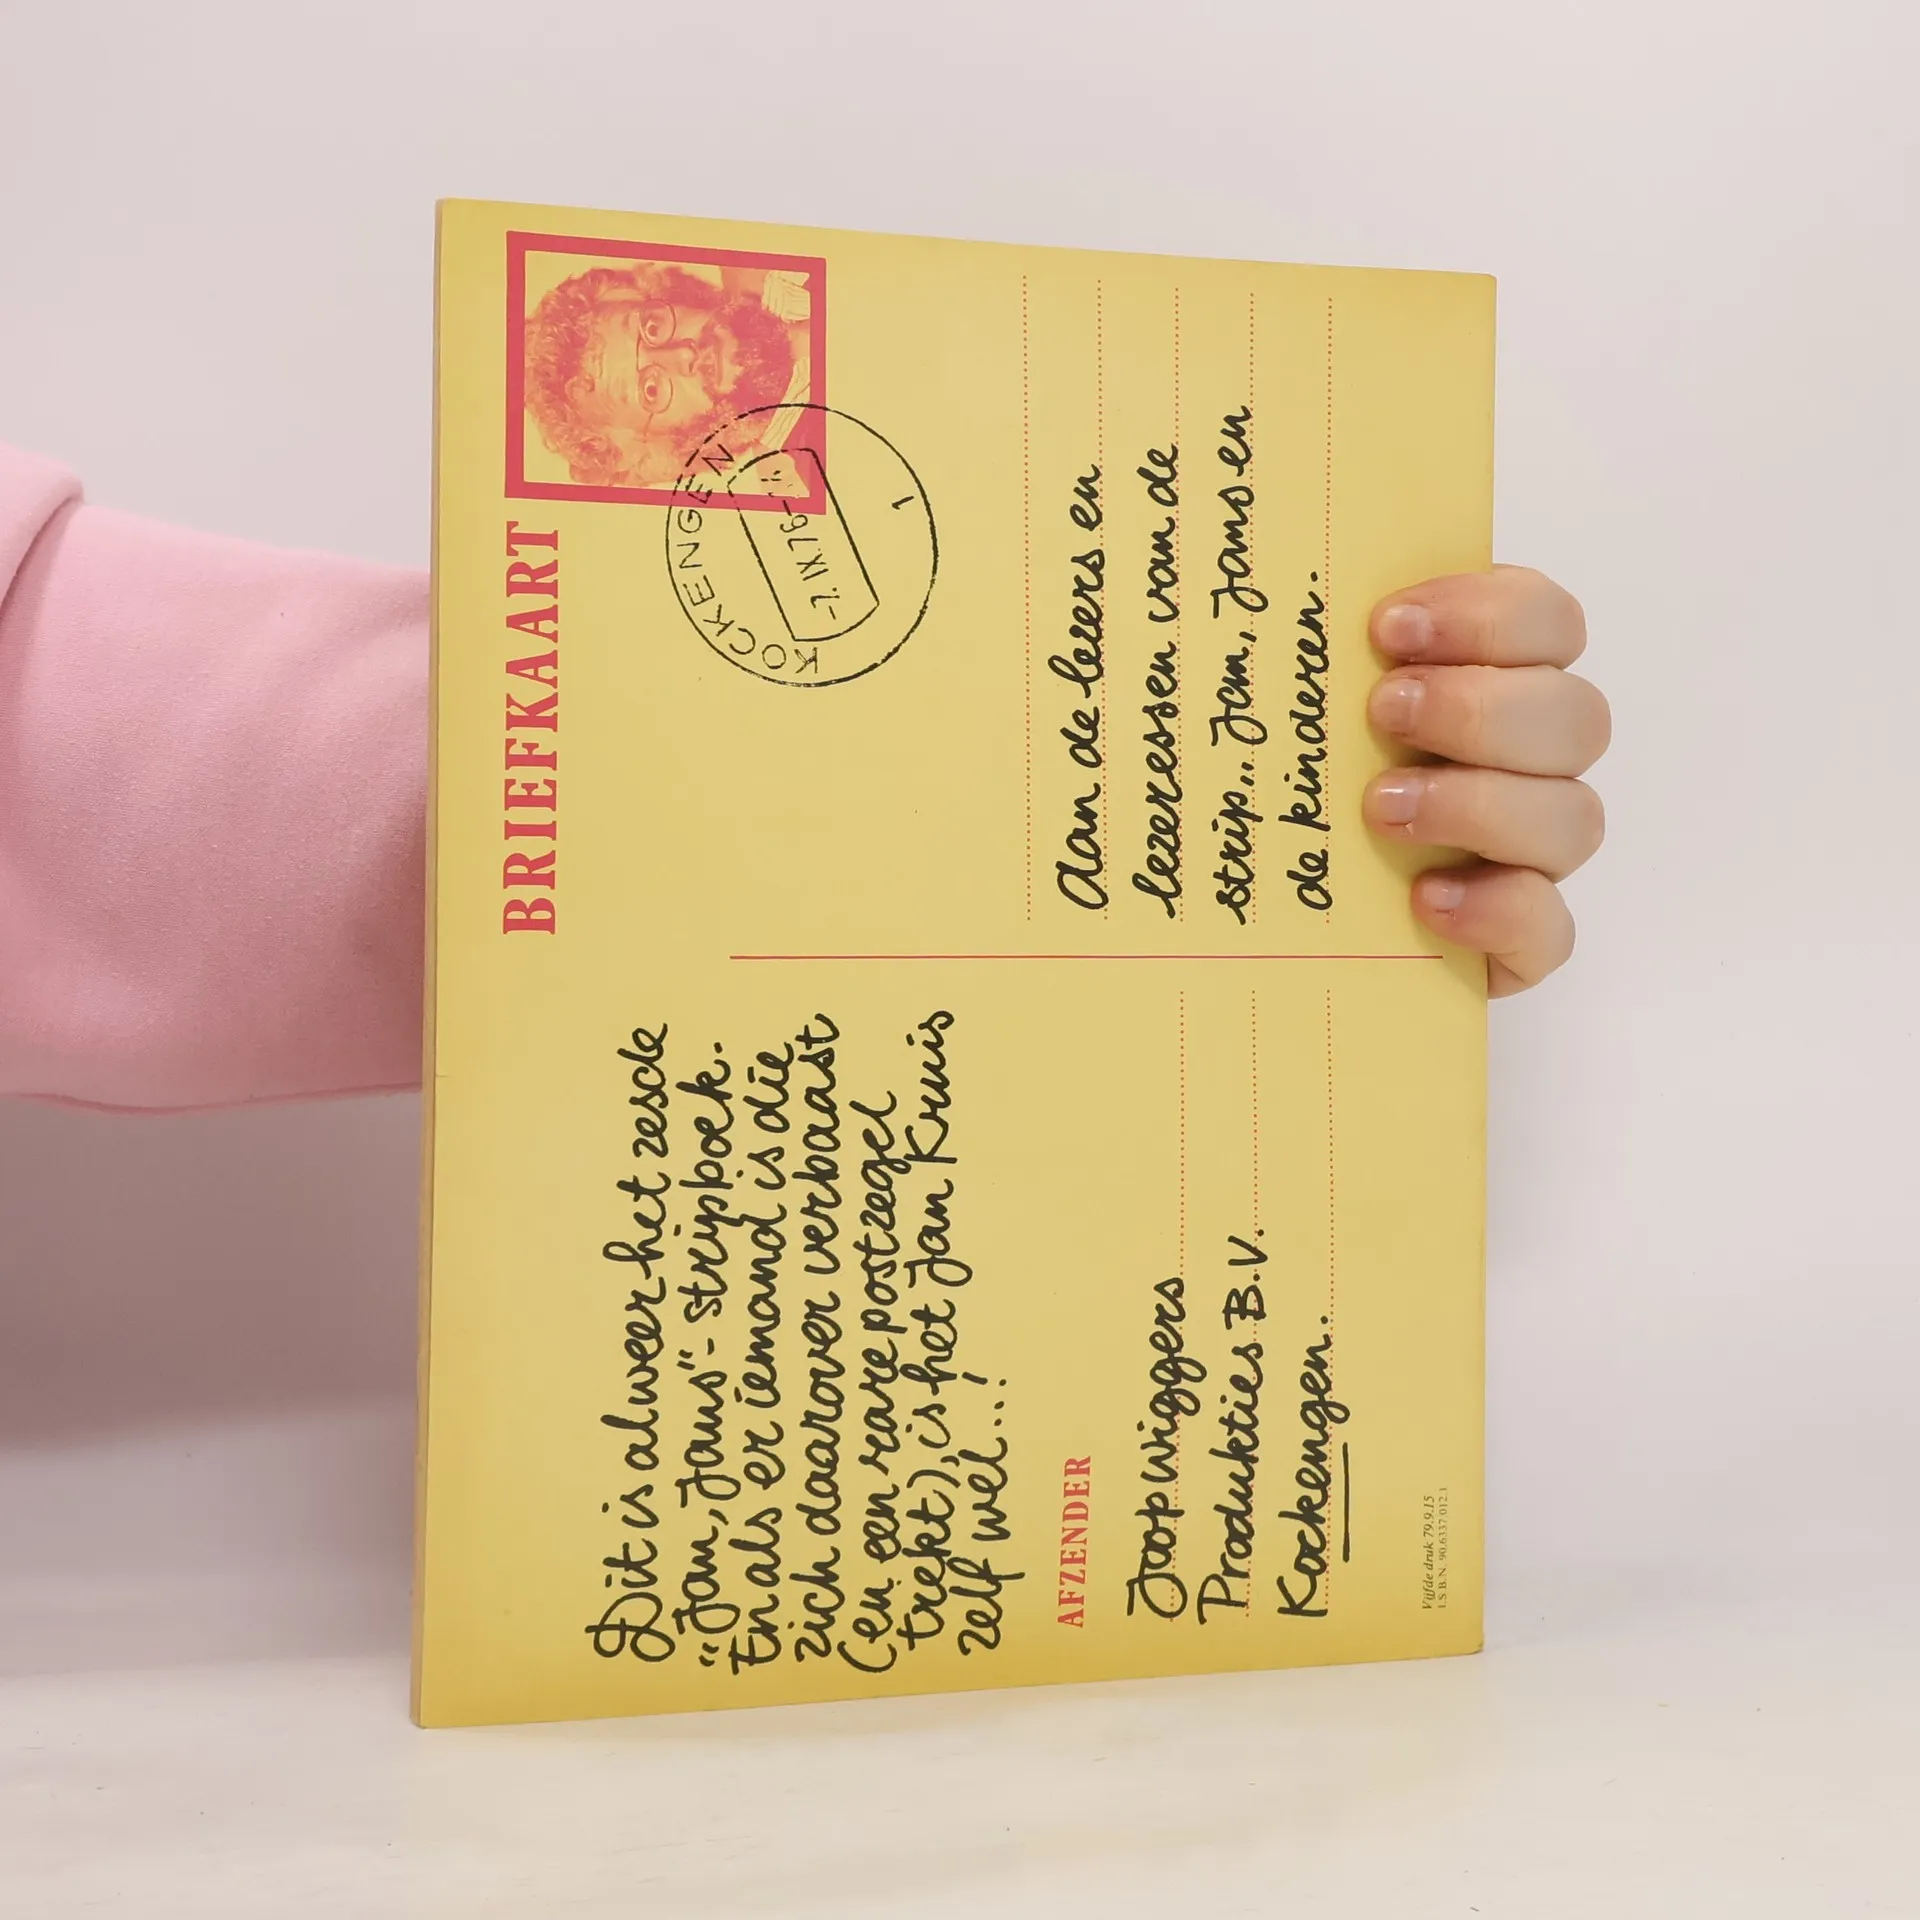 BRIEFKAART
KOCKENGEN
1
Dit is alweer het zesde
"Jan, Jans"-stripboek.
En als er iemand is die
zich daarover verbaast
(en een rare postzegel
trekt), is het Jan Kruis
zelf wel...!
AFZENDER
Joop Wiggers
Produkties B.V.
Kockengen.
Vijfde druk 79.9.15
I.S.B.N. 90.6337.012.1
Aan de lezers en
lezeressen van de
strip.. Jan, Jans en
de kinderen.